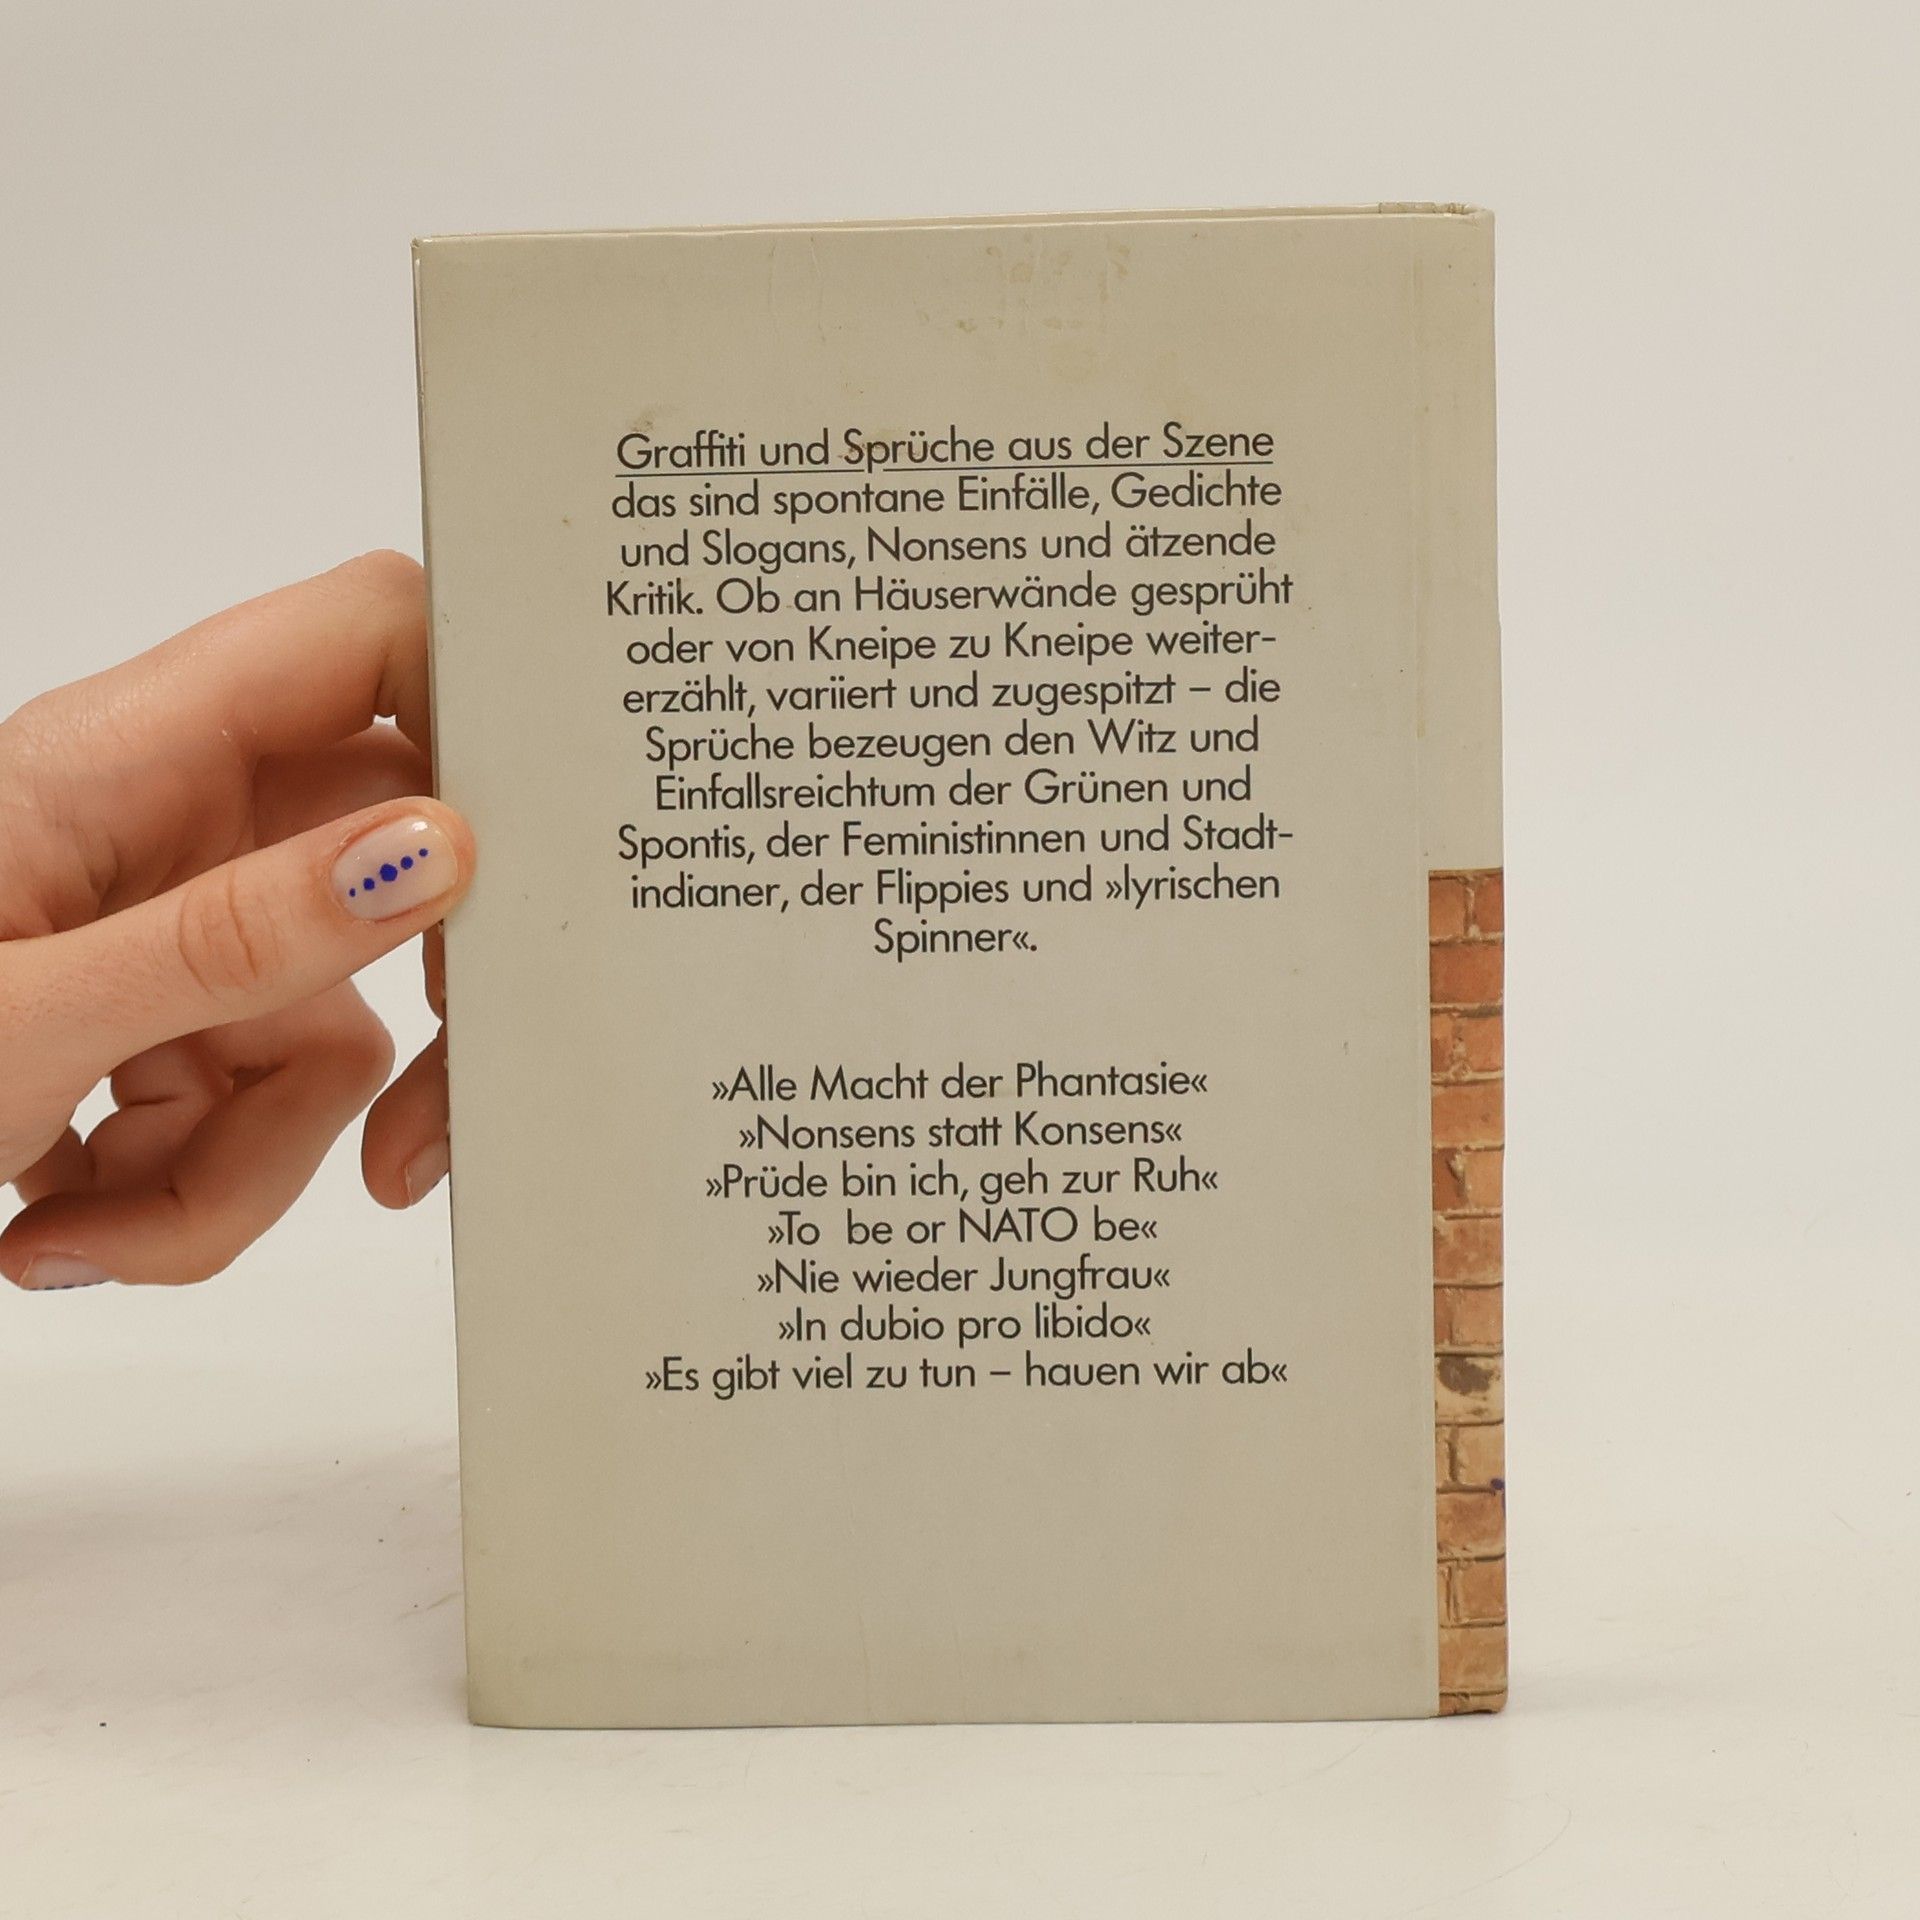 Graffiti und Sprüche aus der Szene
das sind spontane Einfälle, Gedichte
und Slogans, Nonsens und ätzende
Kritik. Ob an Häuserwände gesprüht
oder von Kneipe zu Kneipe weiter-
erzählt, variiert und zugespitzt – die
Sprüche bezeugen den Witz und
Einfallsreichtum der Grünen und
Spontis, der Feministinnen und Stadt-
indianer, der Flippies und »lyrischen
Spinner«.
»Alle Macht der Phantasie«
»Nonsens statt Konsens«
»Prüde bin ich, geh zur Ruh«
»To be or NATO be«
»Nie wieder Jungfrau«
»In dubio pro libido«
»Es gibt viel zu tun – hauen wir ab«